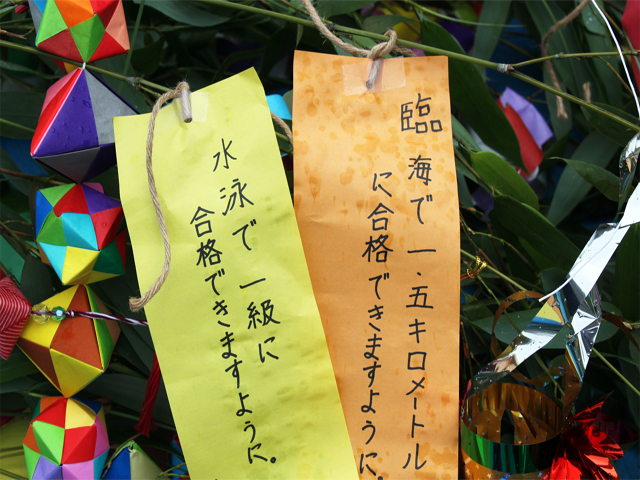 臨海で一.五キロメートル
に合格できますように.
水泳で一級に
合格できますように。